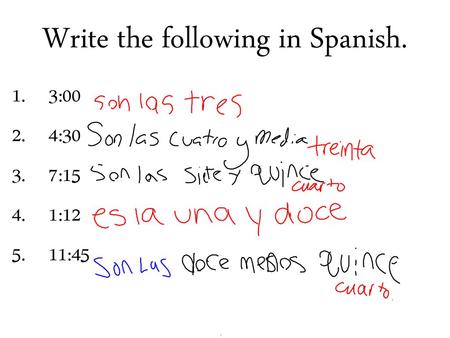 Write the following in Spanish.
1. 3:00 son las tres
2. 4:30 Son las cuatro y media treinta
3. 7:15 Son las siete y quince
cuarto
4. 1:12 es la una y doce
5. 11:45 Son Las doce menos quince
cuarto